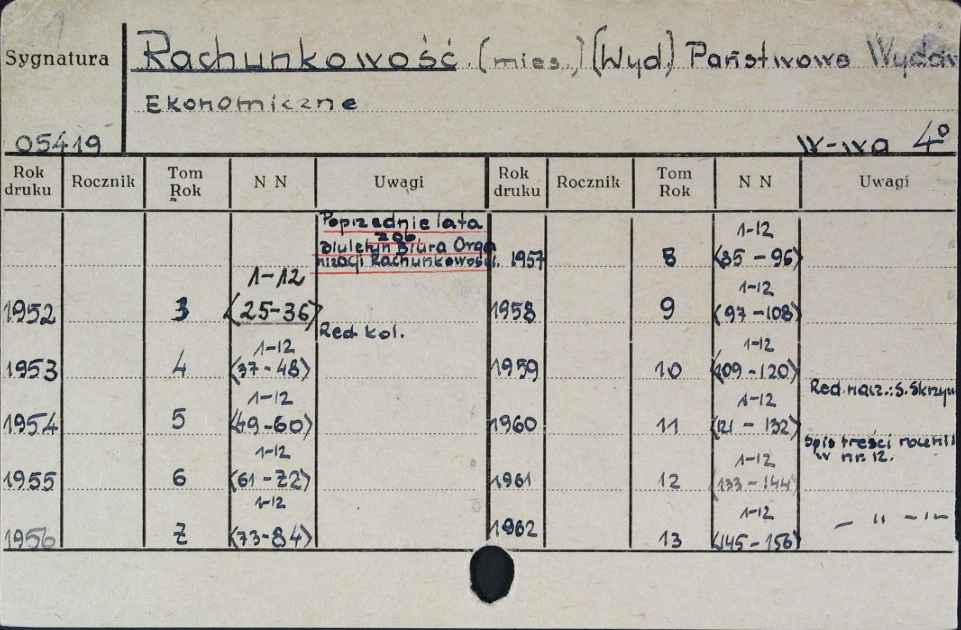 Sygnatura
Rachunkowość (mies.) (Wyd.) Państwowe Wydaw
Ekonomiczne
05419
W-wa 4°
Rok druku Rocznik Tom Rok N N Uwagi Rok druku Rocznik Tom Rok N N Uwagi
Poprzednie lata
zob.
Biuletyn Biura Orga
nizacji Rachunkowości.
1957 8 1-12 (85-96)
1952 3 1-12 (25-36)
Red. kol.
1958 9 1-12 (97-108)
1953 4 1-12 (37-48)
1959 10 1-12 (109-120)
Red. nacz.: S. Skrzyw
1954 5 1-12 (49-60)
1960 11 1-12 (121-132)
Spis treści
w nr 12.
1955 6 1-12 (61-72)
1961 12 1-12 (133-144)
1956 7 1-12 (73-84)
1962 13 1-12 (145-156)
— " —"—